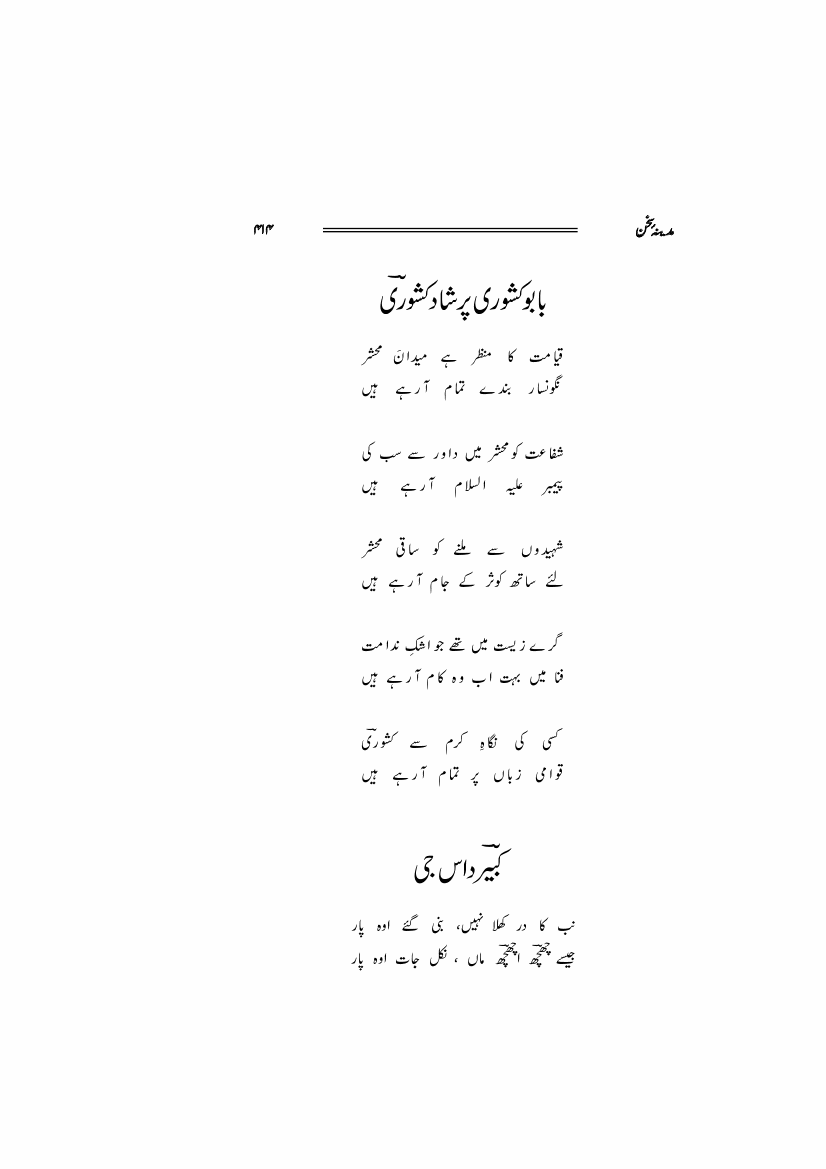 مدینہ سخن ۴۱۴
بابو کشوری پرشاد کشوریؔ
قیامت کا منظر ہے میدانَ محشر
نگونسار بندے تمام آرہے ہیں
شفاعت کو محشر میں داور سے سب کی
پیمبر علیہ السلام آرہے ہیں
شہیدوں سے ملنے کو ساقی محشر
لئے ساتھ کوثر کے جام آرہے ہیں
گرے زیست میں تھے جو اشکِ ندامت
فنا میں بہت اب وہ کام آرہے ہیں
کسی کی نگاہِ کرم سے کشوریؔ
قوامی زباں پر تمام آرہے ہیں
کبیرؔداس جی
نب کا در کھلا نہیں، بنی گئے اوہ پار
جیسے ماں ، نکل جات اوہ پار